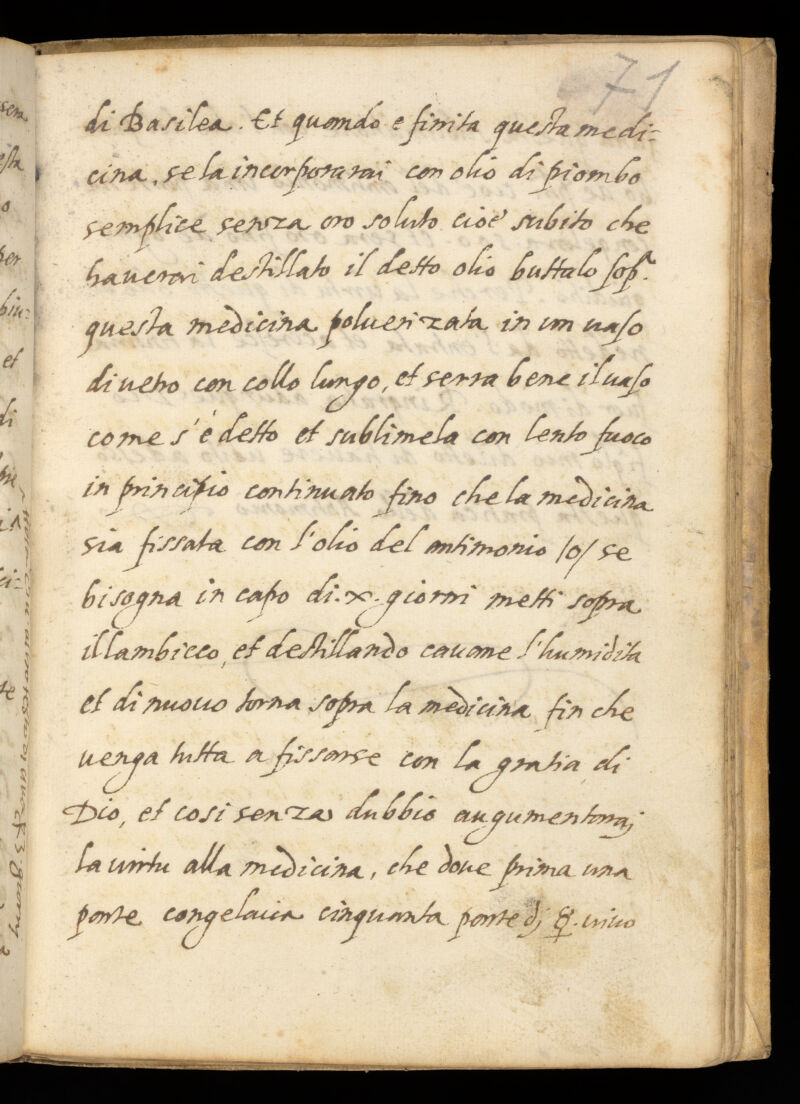 71
di Basilea. Et quando e finita questa medi=
cina, se la incorporarai con olio di piombo
semplice senza oro soluto cioe' subito che
haverai destillato il detto olio buttalo sopra
questa medicina poluerizata in un uaso
di uetro con collo lungo, et serra bene il uaso
come s'é detto et sublimela con lento fuoco
in principio continuato fino che la medicina
sia fissata con l'olio del antimonio /o/ se
bisogna in capo di .x. giorni metti sopra
il lambicco, et destillando cauane l'humidita
et di nuouo torna sopra la medicina fin che
uenga tutta a fissarse con la gratia di
Dio, et cosi senza dubbio augumentarai
la uirtu alla medicina, che doue prima una
parte congelaua cinquanta parte dj ☿. uiuo